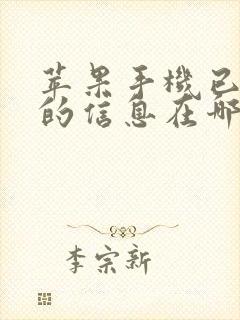 苹果手機已
的信息在哪
李宗新